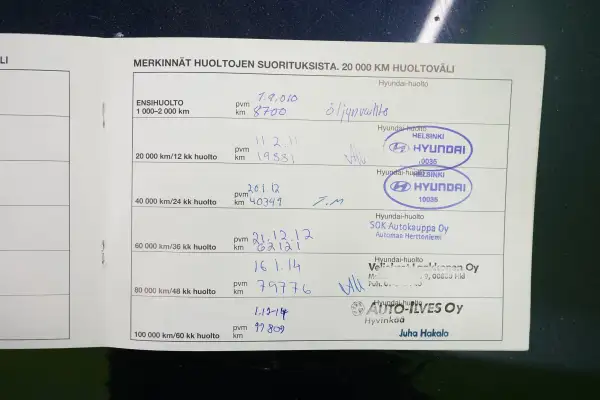 LI
MERKINNÄT HUOLTOJEN SUORITUKSISTA. 20 000 KM HUOLTOVÄLI
Hyundai-huolto
ENSIHUOLTO
1 000–2 000 km
pvm 7.9.010
km 8700 öljynvaihto
Hyundai-huolto
HELSINKI
HYUNDAI
10036
20 000 km/12 kk huolto
pvm 11 2.11
km 19531
Hyundai-huolto
HELSINKI
HYUNDAI
10036
40 000 km/24 kk huolto
pvm 20.1.12
km 40349 T.M
Hyundai-huolto
SOK Autokauppa Oy
Automaa Herttoniemi
60 000 km/36 kk huolto
pvm 21.12.12
km 62121
Hyundai-huolto
Veljekset Laakkonen Oy
80 000 km/48 kk huolto
pvm 16 1.14
km 79776
Hyundai-huolto
AUTO-ILVES Oy
Hyvinkää
Juha Hakala
100 000 km/60 kk huolto
pvm 1.12-14
km 97809